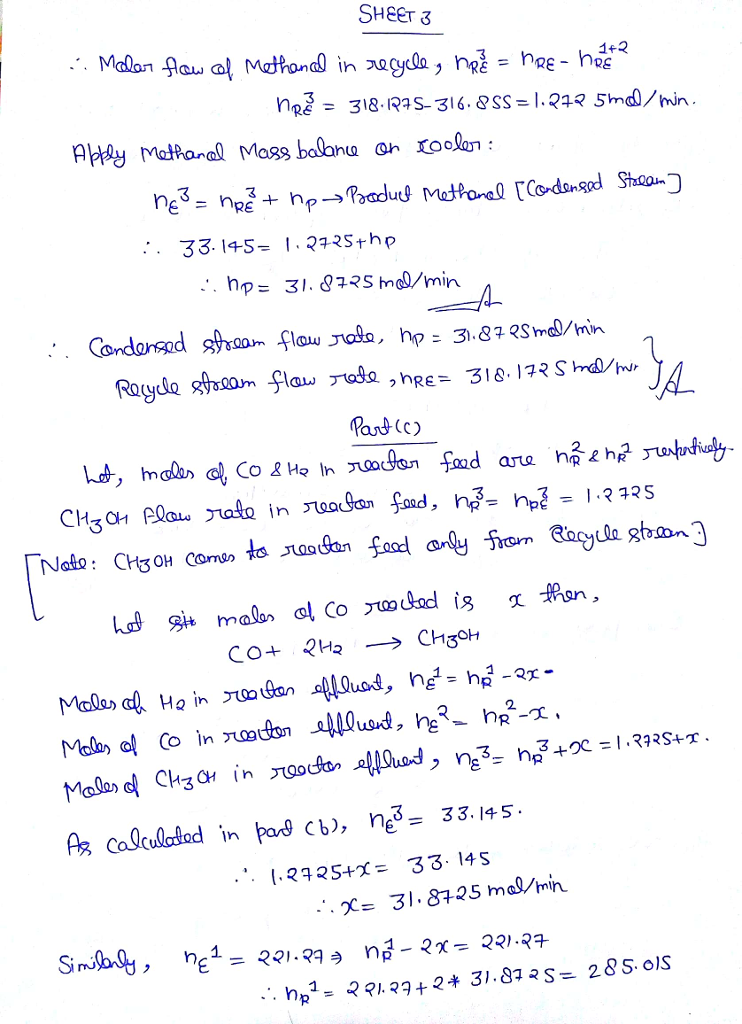 SHEET 3
∴ Molar flow of Methanol in recycle, n_RE^3 = n_RE - n_RE^1+2
n_RE^3 = 318.1275-316.855 = 1.2725mol/min.
Apply Methanol Mass balance on cooler:
n_E^3 = n_RE^3 + n_P → Product Methanol [Condensed Stream]
∴ 33.145 = 1.2725+n_P
∴ n_P = 31.8725 mol/min
∴ Condensed stream flow rate, n_P = 31.8725mol/min
Recycle stream flow rate, n_RE = 318.1725 mol/min
Part (c)
Let, moles of CO & H2 in reactor feed are n_R^2 & n_R^1 respectively.
CH3OH flow rate in reactor feed, n_R^3 = n_RE^3 = 1.2725
[Note: CH3OH comes to reactor feed only from Recycle stream]
Let moles of CO reacted is x then,
CO + 2H2 → CH3OH
Moles of H2 in reactor effluent, n_E^1 = n_R^1 - 2x
Moles of CO in reactor effluent, n_E^2 = n_R^2 - x.
Moles of CH3OH in reactor effluent, n_E^3 = n_R^3 + x = 1.2725+x.
As calculated in part (b), n_E^3 = 33.145.
∴ 1.2725+x = 33.145
∴ x = 31.8725 mol/min
Similarly, n_E^1 = 221.27 ⇒ n_R^1 - 2x = 221.27
∴ n_R^1 = 221.27+2*31.8725 = 285.015